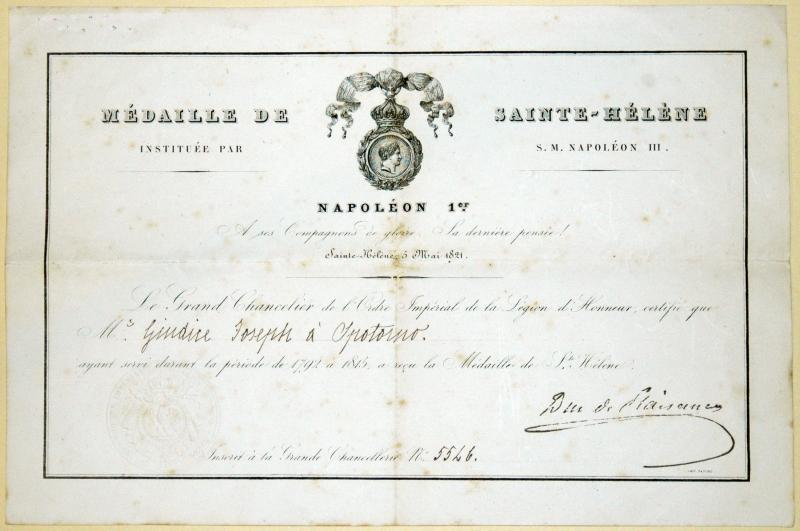 MÉDAILLE DE SAINTE-HÉLÈNE
INSTITUÉE PAR S. M. NAPOLÉON III.
NAPOLÉON 1er
A ses Compagnons de gloire, Sa dernière pensée!
Sainte-Hélène 5 Mai 1821.
Le Grand Chancelier de l'Ordre Impérial de la Légion d'Honneur, certifie que
M.r Giudice Joseph à Spotorno.
ayant servi durant la période de 1792 à 1815, a reçu la Médaille de Ste Hélène.
Duc de Plaisance
Inscrit à la Grande Chancellerie No. 5546.